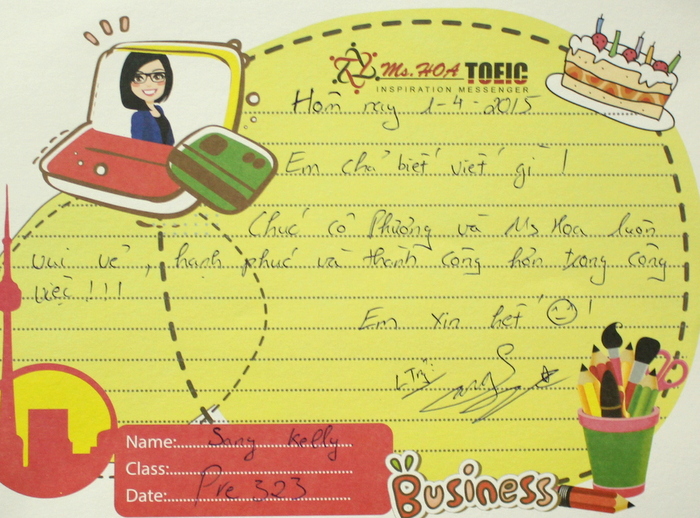 Ms. HOA TOEIC
INSPIRATION MESSENGER
Hôm nay 1-4-2015
Em chả biết viết gì!
Chúc cô Phương và Ms Hoa luôn
vui vẻ, hạnh phúc và thành công hơn trong công
việc!!!
Em xin hết!
Name: Sang Kelly
Class:
Date: Pre 323
Business